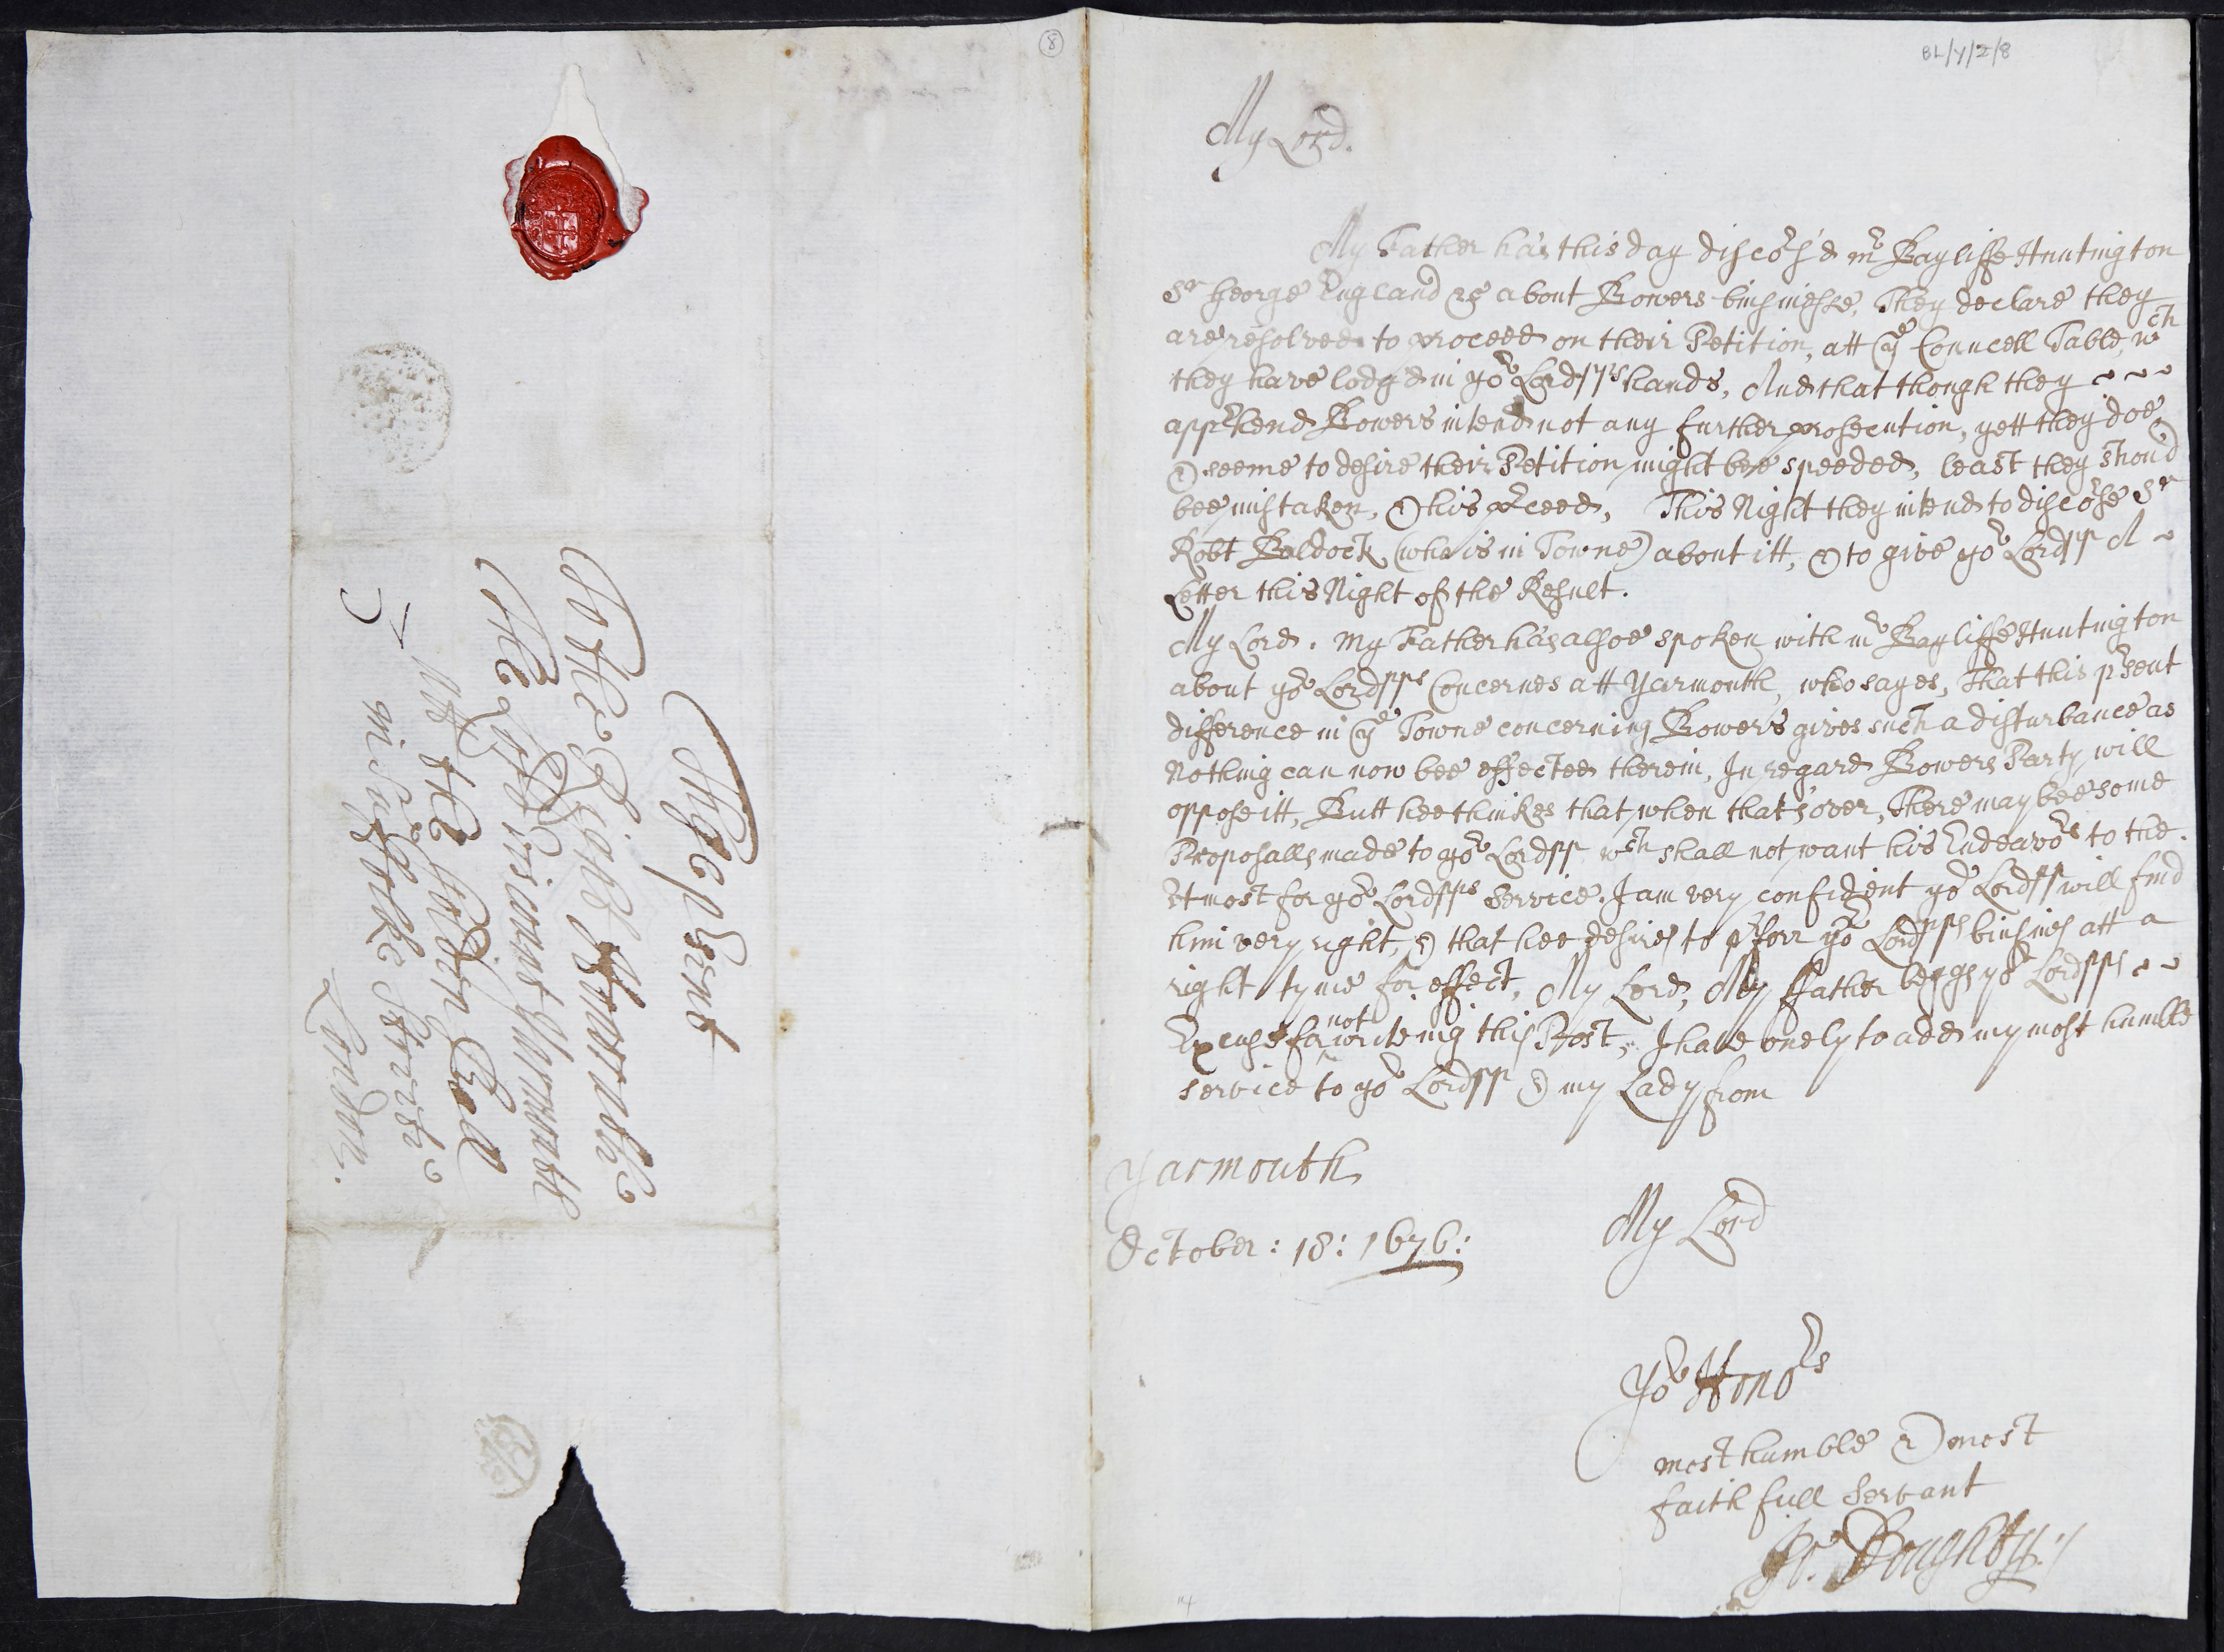 8
BL/Y/2/8
My Lord.
My Father has this day discors'd mr Bayliffe Huntington
Sr George England &c about Bowers businesse, They declare they
are resolved to proceed on their Petition, att ye Councell Table, wch
they have lodg'd in yor Lordpps hands, And that though they
apprhend Bowers intend not any further prosecution, yett they doe
& seeme to desire their Petition might bee speeded, least they shoud
bee mistaken, & his prceed, This Night they intend to discorse Sr
Robt Baldock (who is in Towne) about itt, & to give yor Lordpp A
Letter this Night of the Result.
My Lord. My Father has alsoe spoken with mr Bayliffe Huntington
about yor Lordpps Concernes att Yarmouth, who sayes, That this prsent
difference in ye Towne concerning Bowers gives such a disturbance as
Nothing can now bee effected therein, In regard Bowers Party will
oppose itt, Butt hee thinkes that when that's over, There may bee some
Proposalls made to yor Lordpp wch shall not want his Endeavors to the
Vtmost for yor Lordpps Service. I am very confident yor Lordpp will find
him very right, & that hee desires to prforr yor Lordpps busines att a
right tyme for effect, My Lord, My Father beggs yor Lordpps
Excuse for not writeing this Post, I have onely to add my most humble
service to yor Lordpp & my Lady from
Yarmouth
October: 18: 1676:
My Lord
Yor Honors
most humble & most
faithfull Servant
Doughty
These present
To the Right Honourable
The Lord Viscount Yarmouth
Att the Golden Ball
in Suffolke Streete
London.
3